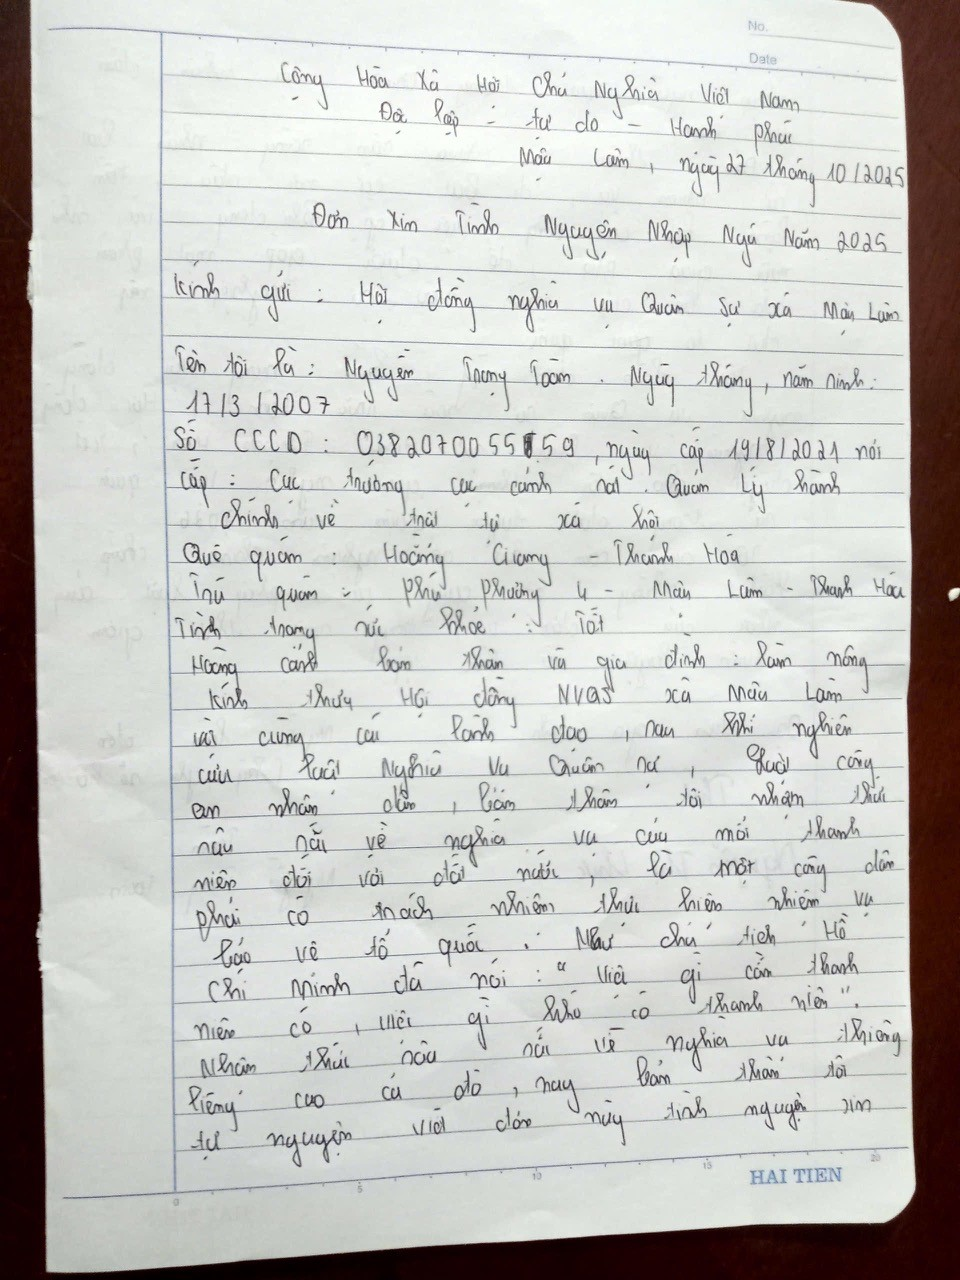 No.
Date
Cộng Hòa Xã Hội Chủ Nghĩa Việt Nam
Độc lập - tự do - Hạnh phúc
Mậu Lâm, ngày 27 tháng 10/2025
Đơn Xin Tình Nguyện Nhập Ngũ Năm 2025
Kính gửi : Hội đồng nghĩa vụ Quân sự xã Mậu Lâm
Tên tôi là : Nguyễn Trọng Toàn . Ngày tháng, năm sinh :
17/3/2007
Số CCCD : 038207005559, ngày cấp 19/8/2021 nơi
cấp : Cục trưởng cục cảnh sát . Quản Lý hành
chính về trật tự xã hội
Quê quán : Hoằng Giang - Thanh Hóa
Trú quán : Phú Phượng 4 - Mậu Lâm - Thanh Hóa
Tình trạng sức khỏe : Tốt
Hoàng cảnh bản thân và gia đình : làm nông
Kính thưa Hội đồng NVQS xã Mậu Lâm
cùng các lãnh đạo, sau khi nghiên
cứu luật Nghĩa Vụ Quân sự, luật công
an nhân dân, bản thân tôi nhậm thức
sâu sắc về nghĩa vụ của mỗi thanh
niên đối với đất nước, là một công dân
phải có trách nhiệm thực hiện nhiệm vụ
bảo vệ tổ quốc . Như chủ tịch Hồ
Chí Minh đã nói : " Việc gì cần thanh
niên có, việc gì khó có thanh niên ".
Nhận thức sâu sắc về nghĩa vụ thiêng
liêng cao cả đó, nay bản thân tôi
tự nguyện viết đơn này tình nguyện xin
0 5 10 15 20
HAI TIEN